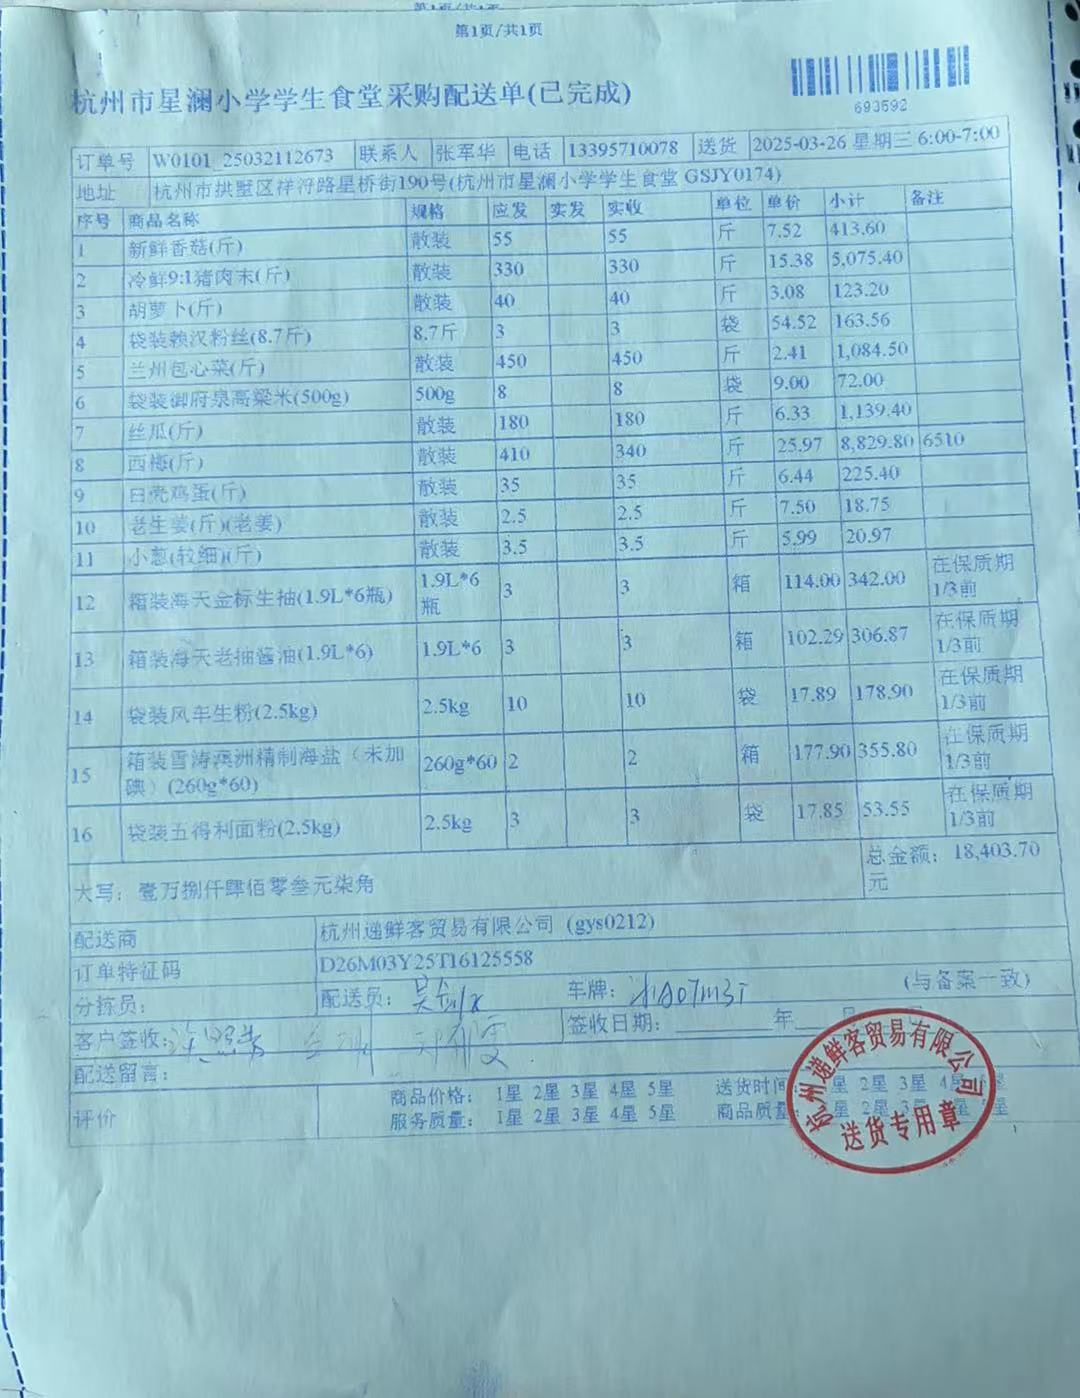 第1页/共1页
第1页/共1页
693592
杭州市星澜小学学生食堂采购配送单(已完成)
订单号 W0101_25032112673 联系人 张军华 电话 13395710078 送货 2025-03-26 星期三 6:00-7:00
地址 杭州市拱墅区祥符路星桥街190号(杭州市星澜小学学生食堂 GSJY0174)
序号 商品名称 规格 应发 实发 实收 单位 单价 小计 备注
1 新鲜香菇(斤) 散装 55 55 斤 7.52 413.60
2 冷鲜9:1猪肉末(斤) 散装 330 330 斤 15.38 5,075.40
3 胡萝卜(斤) 散装 40 40 斤 3.08 123.20
4 袋装赖汉粉丝(8.7斤) 8.7斤 3 3 袋 54.52 163.56
5 兰州包心菜(斤) 散装 450 450 斤 2.41 1,084.50
6 袋装御府泉高粱米(500g) 500g 8 8 袋 9.00 72.00
7 丝瓜(斤) 散装 180 180 斤 6.33 1,139.40
8 西梅(斤) 散装 410 340 斤 25.97 8,829.80 6510
9 白壳鸡蛋(斤) 散装 35 35 斤 6.44 225.40
10 老生姜(斤)(老姜) 散装 2.5 2.5 斤 7.50 18.75
11 小葱(较细)(斤) 散装 3.5 3.5 斤 5.99 20.97
12 箱装海天金标生抽(1.9L*6瓶) 1.9L*6瓶 3 3 箱 114.00 342.00 在保质期1/3前
13 箱装海天老抽酱油(1.9L*6) 1.9L*6 3 3 箱 102.29 306.87 在保质期1/3前
14 袋装风车生粉(2.5kg) 2.5kg 10 10 袋 17.89 178.90 在保质期1/3前
15 箱装雪涛澳洲精制海盐（未加碘）(260g*60) 260g*60 2 2 箱 177.90 355.80 在保质期1/3前
16 袋装五得利面粉(2.5kg) 2.5kg 3 3 袋 17.85 53.55 在保质期1/3前
大写：壹万捌仟肆佰零叁元柒角 总金额：18,403.70元
配送商 杭州递鲜客贸易有限公司 (gys0212)
订单特征码 D26M03Y25T16125558
分拣员： 配送员： 车牌： (与备案一致)
客户签收： 签收日期： 年 月
配送留言：
评价 商品价格： 1星 2星 3星 4星 5星 送货时间 星 2星 3星 4星 星
服务质量： 1星 2星 3星 4星 5星 商品质量 星 2星 3星 星 星
杭州递鲜客贸易有限公司
送货专用章